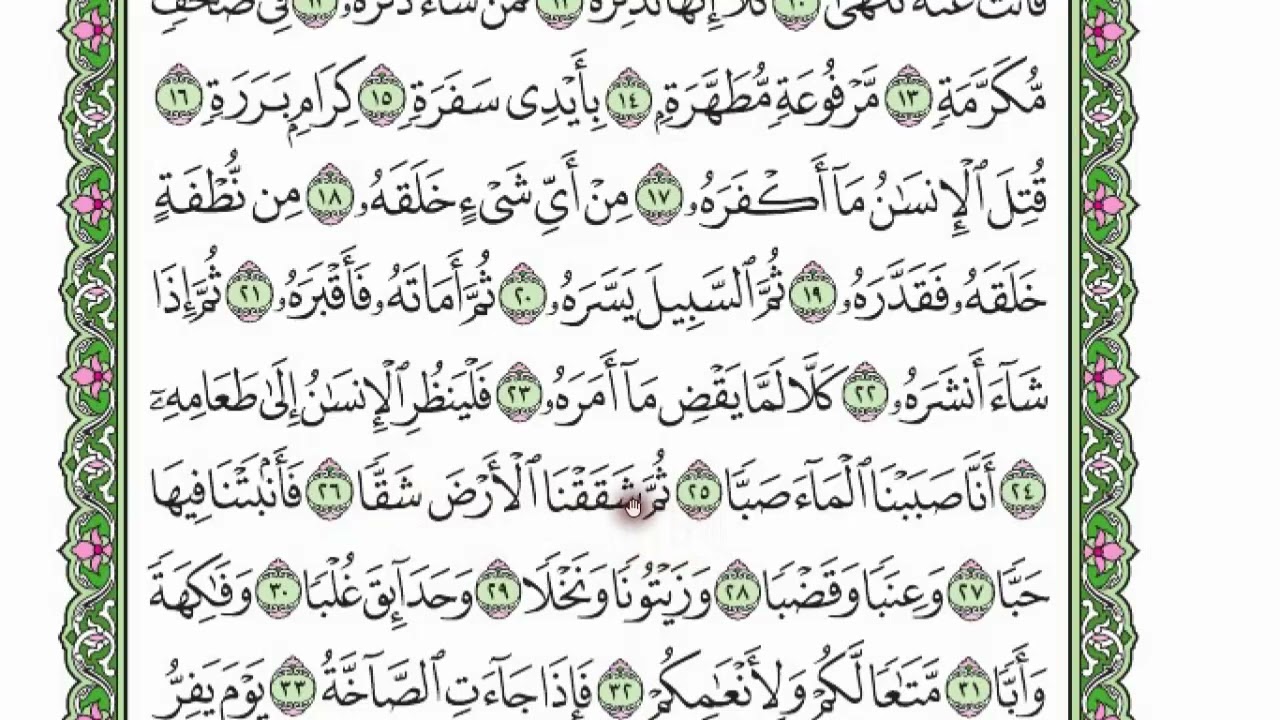 فَأَنتَ عَنْهُ تَلَهَّىٰ ١٠ كَلَّآ إِنَّهَا تَذْكِرَةٌ ١١ فَمَن شَآءَ ذَكَرَهُۥ ١٢ فِى صُحُفٍ
مُّكَرَّمَةٍ ١٣ مَّرْفُوعَةٍ مُّطَهَّرَةٍۭ ١٤ بِأَيْدِى سَفَرَةٍ ١٥ كِرَامٍۭ بَرَرَةٍ ١٦
قُتِلَ ٱلْإِنسَـٰنُ مَآ أَكْفَرَهُۥ ١٧ مِنْ أَىِّ شَىْءٍ خَلَقَهُۥ ١٨ مِن نُّطْفَةٍ
خَلَقَهُۥ فَقَدَّرَهُۥ ١٩ ثُمَّ ٱلسَّبِيلَ يَسَّرَهُۥ ٢٠ ثُمَّ أَمَاتَهُۥ فَأَقْبَرَهُۥ ٢١ ثُمَّ إِذَا
شَآءَ أَنشَرَهُۥ ٢٢ كَلَّا لَمَّا يَقْضِ مَآ أَمَرَهُۥ ٢٣ فَلْيَنظُرِ ٱلْإِنسَـٰنُ إِلَىٰ طَعَامِهِۦٓ
٢٤ أَنَّا صَبَبْنَا ٱلْمَآءَ صَبًّا ٢٥ ثُمَّ شَقَقْنَا ٱلْأَرْضَ شَقًّا ٢٦ فَأَنۢبَتْنَا فِيهَا
حَبًّا ٢٧ وَعِنَبًا وَقَضْبًا ٢٨ وَزَيْتُونًا وَنَخْلًا ٢٩ وَحَدَآئِقَ غُلْبًا ٣٠ وَفَـٰكِهَةً
وَأَبًّا ٣١ مَّتَـٰعًا لَّكُمْ وَلِأَنْعَـٰمِكُمْ ٣٢ فَإِذَا جَآءَتِ ٱلصَّآخَّةُ ٣٣ يَوْمَ يَفِرُّ